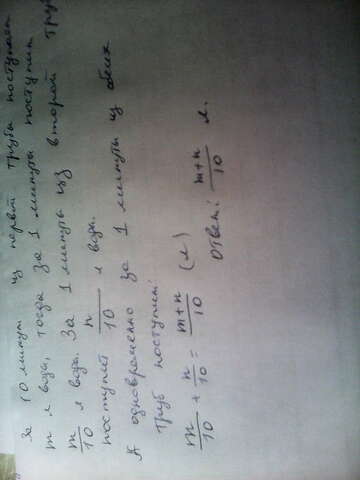 За 10 минут из первой трубы поступает
m л воды, тогда за 1 минуту поступит
m/10 л воды. За 1 минуту из второй
поступит n/10 л воды.
К одновременно за 1 минуту из обеих
труб поступит:
m/10 + n/10 = m+n/10 (л)
Ответ: m+n/10 л.